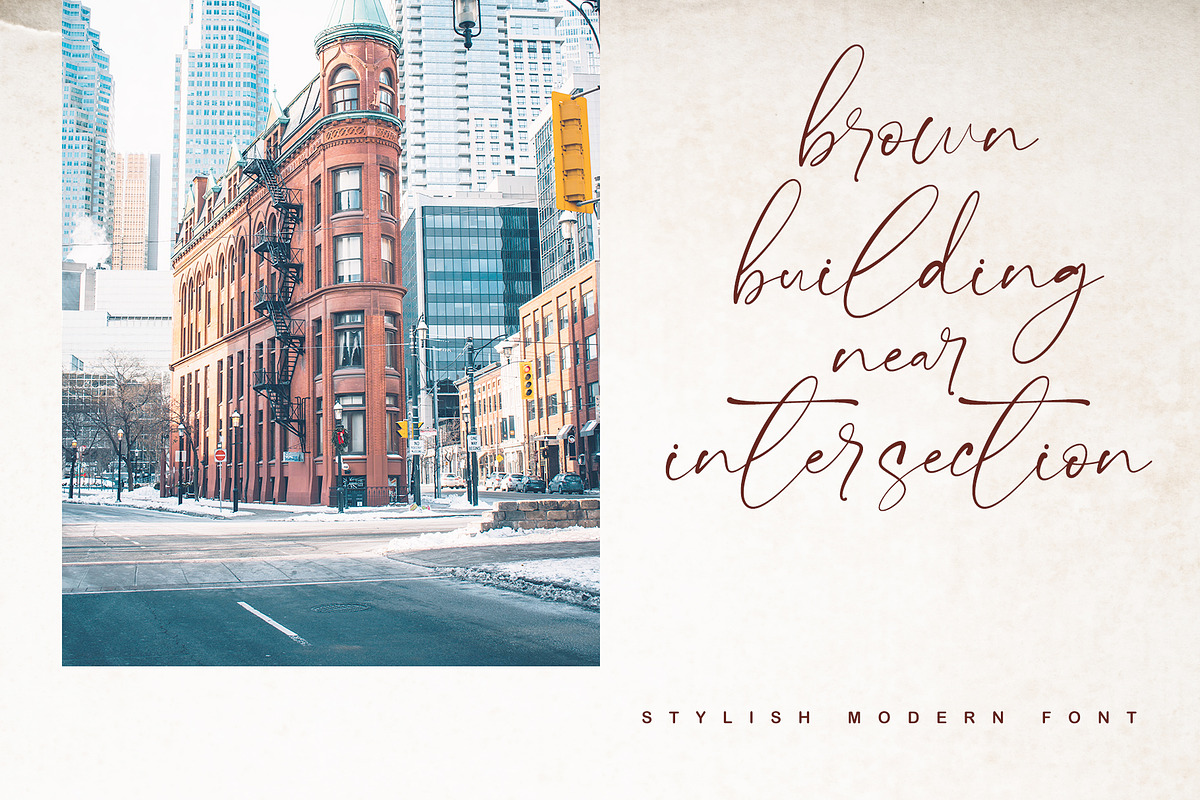 brown
building
near
intersection
STYLISH MODERN FONT